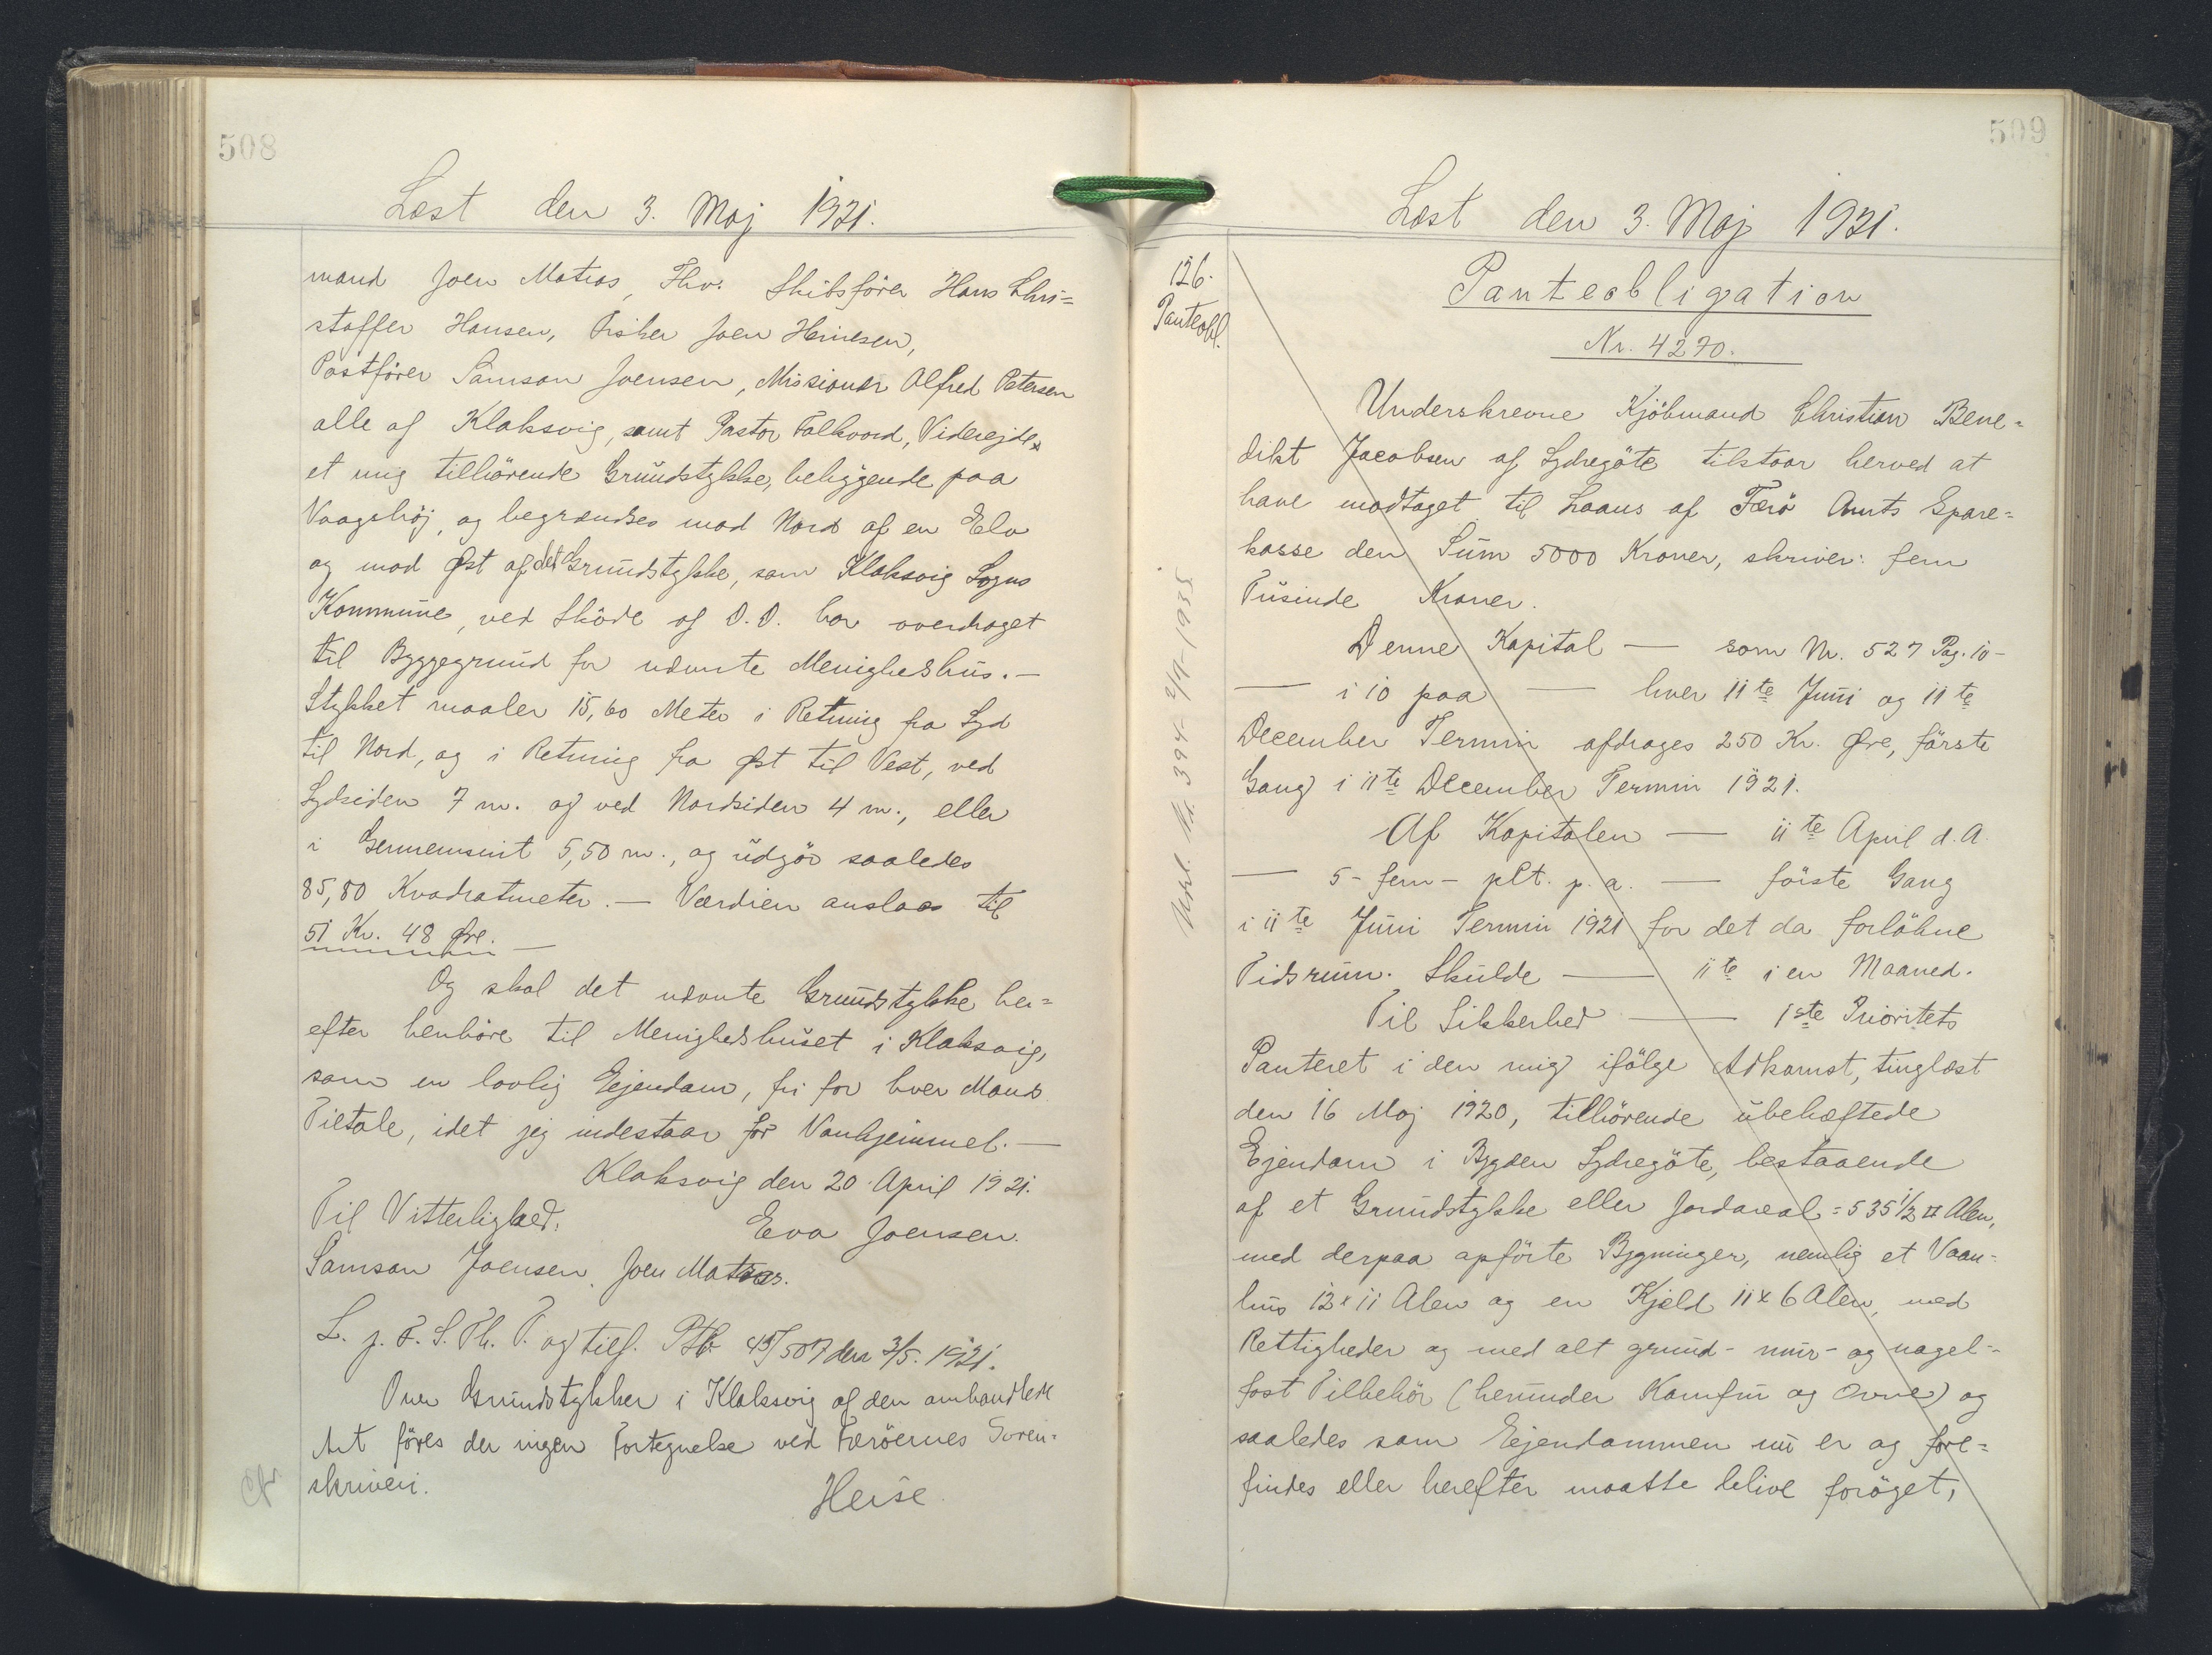 508
Læst den 3. Maj 1921.
mand Joen Matras, Fhv. Skibsförer Hans Chri=
stoffer Hansen, Fisker Joen Heinesen,
Postförer Samson Joensen, Missionær Alfred Petersen
alle af Klaksvig, samt Pastor Falkvord, Viderejde,
et mig tilhörende Grundstykke, beliggende paa
Vaagshöj, og begrændses mod Nord af en Elv
og mod Øst af det Grundstykke, som Klaksvig Sogns
Kommune, ved Sköde af D.D. har overdraget
til Byggegrund for nævnte Menighedshus. —
Stykket maaler 15,60 Meter i Retning fra Syd
til Nord, og i Retning fra Øst til Vest, ved
Sydsiden 7 m. og ved Nordsiden 4 m., eller
i Gennemsnit 5,50 m., og udgör saaledes
85,80 Kvadratmeter. — Værdien anslaas til
51 Kr. 48 Øre. —
Og skal det nævnte Grundstykke her=
efter henhöre til Menighedshuset i Klaksvig,
som en lovlig Ejendom, fri for hver Mands
Tiltale, idet jeg indestaar for Vanhjemmel. —
Klaksvig den 20 April 1921.
Til Vitterlighed: Eva Joensen.
Samson Joensen. Joen Matras.
L. j. F. S. Th. P. og tilf. Ptb. 45/507 den 3/5. 1921.
Over Grundstykker i Klaksvig af den omhandlede
Art föres der ingen Fortegnelse ved Færöernes Soren=
skriveri.
Heise
509
Læst den 3. Maj 1921.
126.
Panteobl.
Panteobligation
Nr. 4270.
Underskrevne Kjöbmand Christian Bene=
dikt Jacobsen af Sydregöte tilstaar herved at
have modtaget til Laans af Færö Amts Spare=
kasse den Sum 5000 Kroner, skriver: fem
Tusinde Kroner.
Denne Kapital — som Nr. 527 Pag. 10 –
— i 10 paa — hver 11te Juni og 11te
December Termin afdrages 250 Kr. Øre, förste
Gang i 11te December Termin 1921.
Af Kapitalen — 11te April d. A.
— 5 - fem - pCt. p. a. — förste Gang
i 11te Juni Termin 1921 for det da forlöbne
Tidsrum. Skulde — 11te i en Maaned.
Til Sikkerhed — 1ste Prioritets
Panteret i den mig ifölge Adkomst, tinglæst
den 16 Maj 1920, tilhörende ubehæftede
Ejendom i Bygden Sydregöte, bestaaende
af et Grundstykke eller Jordareal = 535 1/2 □ Alen,
med derpaa opförte Bygninger, nemlig et Vaan=
hus 12 x 11 Alen og en Kjeld 11 x 6 Alen, med
Rettigheder og med alt grund- mur- og nagel=
fast Tilbehör (herunder Komfur og Ovne) og
saaledes som Ejendommen nu er og fore=
findes eller herefter maatte blive foröget,
Udsl. Nr. 394 - 2/11 - 1935